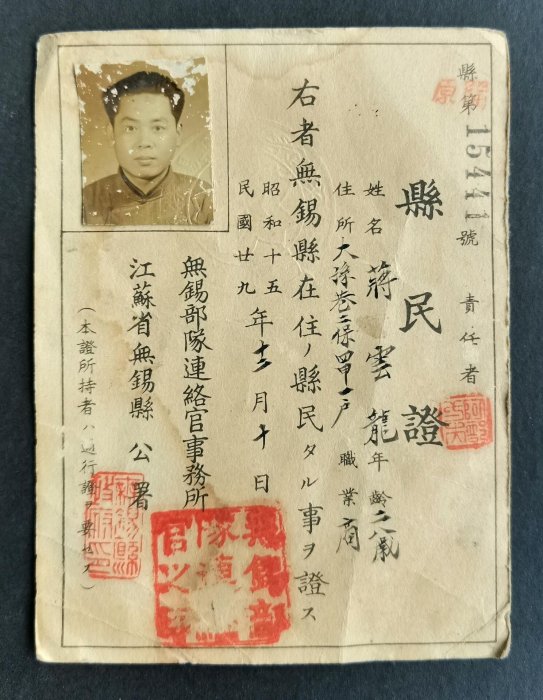 縣第15441號 責任者
縣民證
姓名 蔣雲龍 年齡 二八歲
住所 大孫巷二保四甲一戶 職業 商
右者無錫縣在住ノ縣民タル事ヲ證ス
昭和十五
民國廿九
年十二月十日
無錫部隊連絡官事務所
江蘇省無錫縣公署
(本證所持者ハ通行證ヲ要セス)
無錫部隊連官之